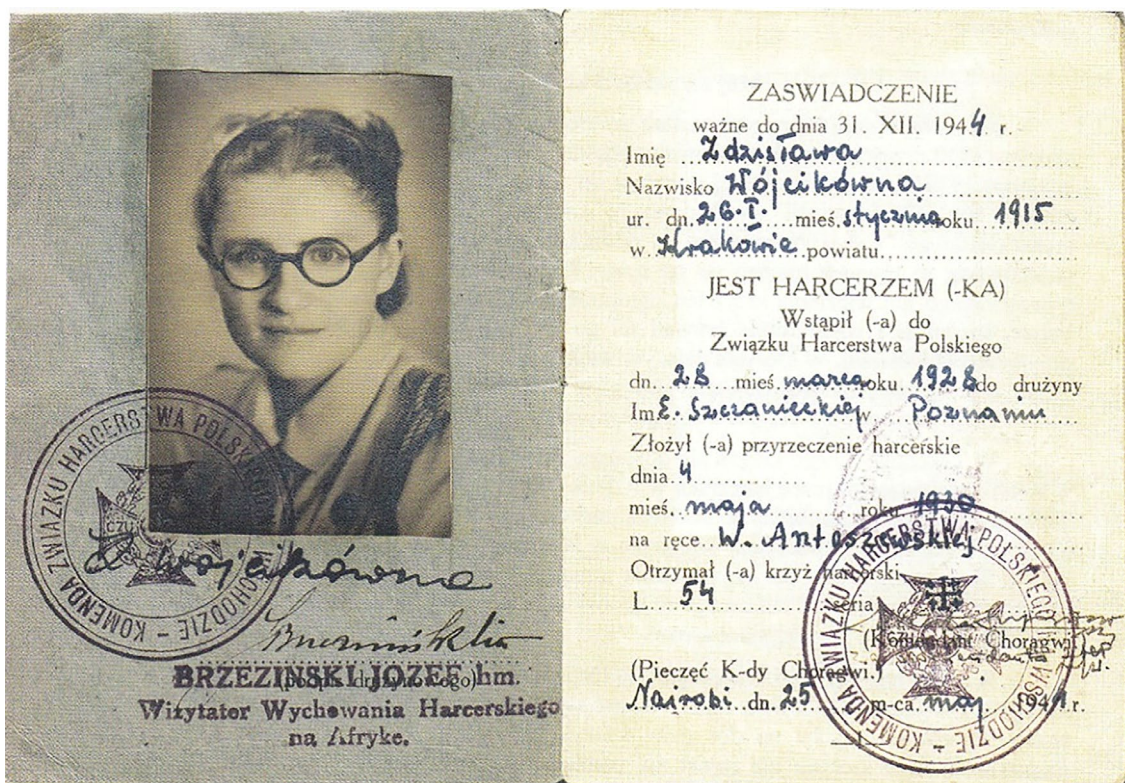 KOMENDA ZWIĄZKU HARCERSTWA POLSKIEGO WSCHODZIE
CZU
Z Wójcikówna
(podpis drużynowego)
BRZEZINSKI JOZEF hm.
Wizytator Wychowania Harcerskiego
na Afryke.
ZASWIADCZENIE
ważne do dnia 31. XII. 1944 r.
Imię Zdzisława
Nazwisko Wójcikówna
ur. dn. 26.I. mieś. stycznia roku 1915
w Krakowie powiatu
JEST HARCERZEM (-KA)
Wstąpił (-a) do
Związku Harcerstwa Polskiego
dn. 28 mieś. marca roku 1928 do drużyny
Im E. Szczanieckiej w Poznaniu
Złożył (-a) przyrzeczenie harcerskie
dnia 4
mieś. maja roku 1930
na ręce W. Antoszewskiej
Otrzymał (-a) krzyż harcerski
L. 54 Seria
(Komendant Chorągwi)
(Pieczęć K-dy Chorągwi.)
Nairobi dn. 25 m-ca maj 194 r.
KOMENDA ZWIĄZKU HARCERSTWA POLSKIEGO NA WSCHODZIE